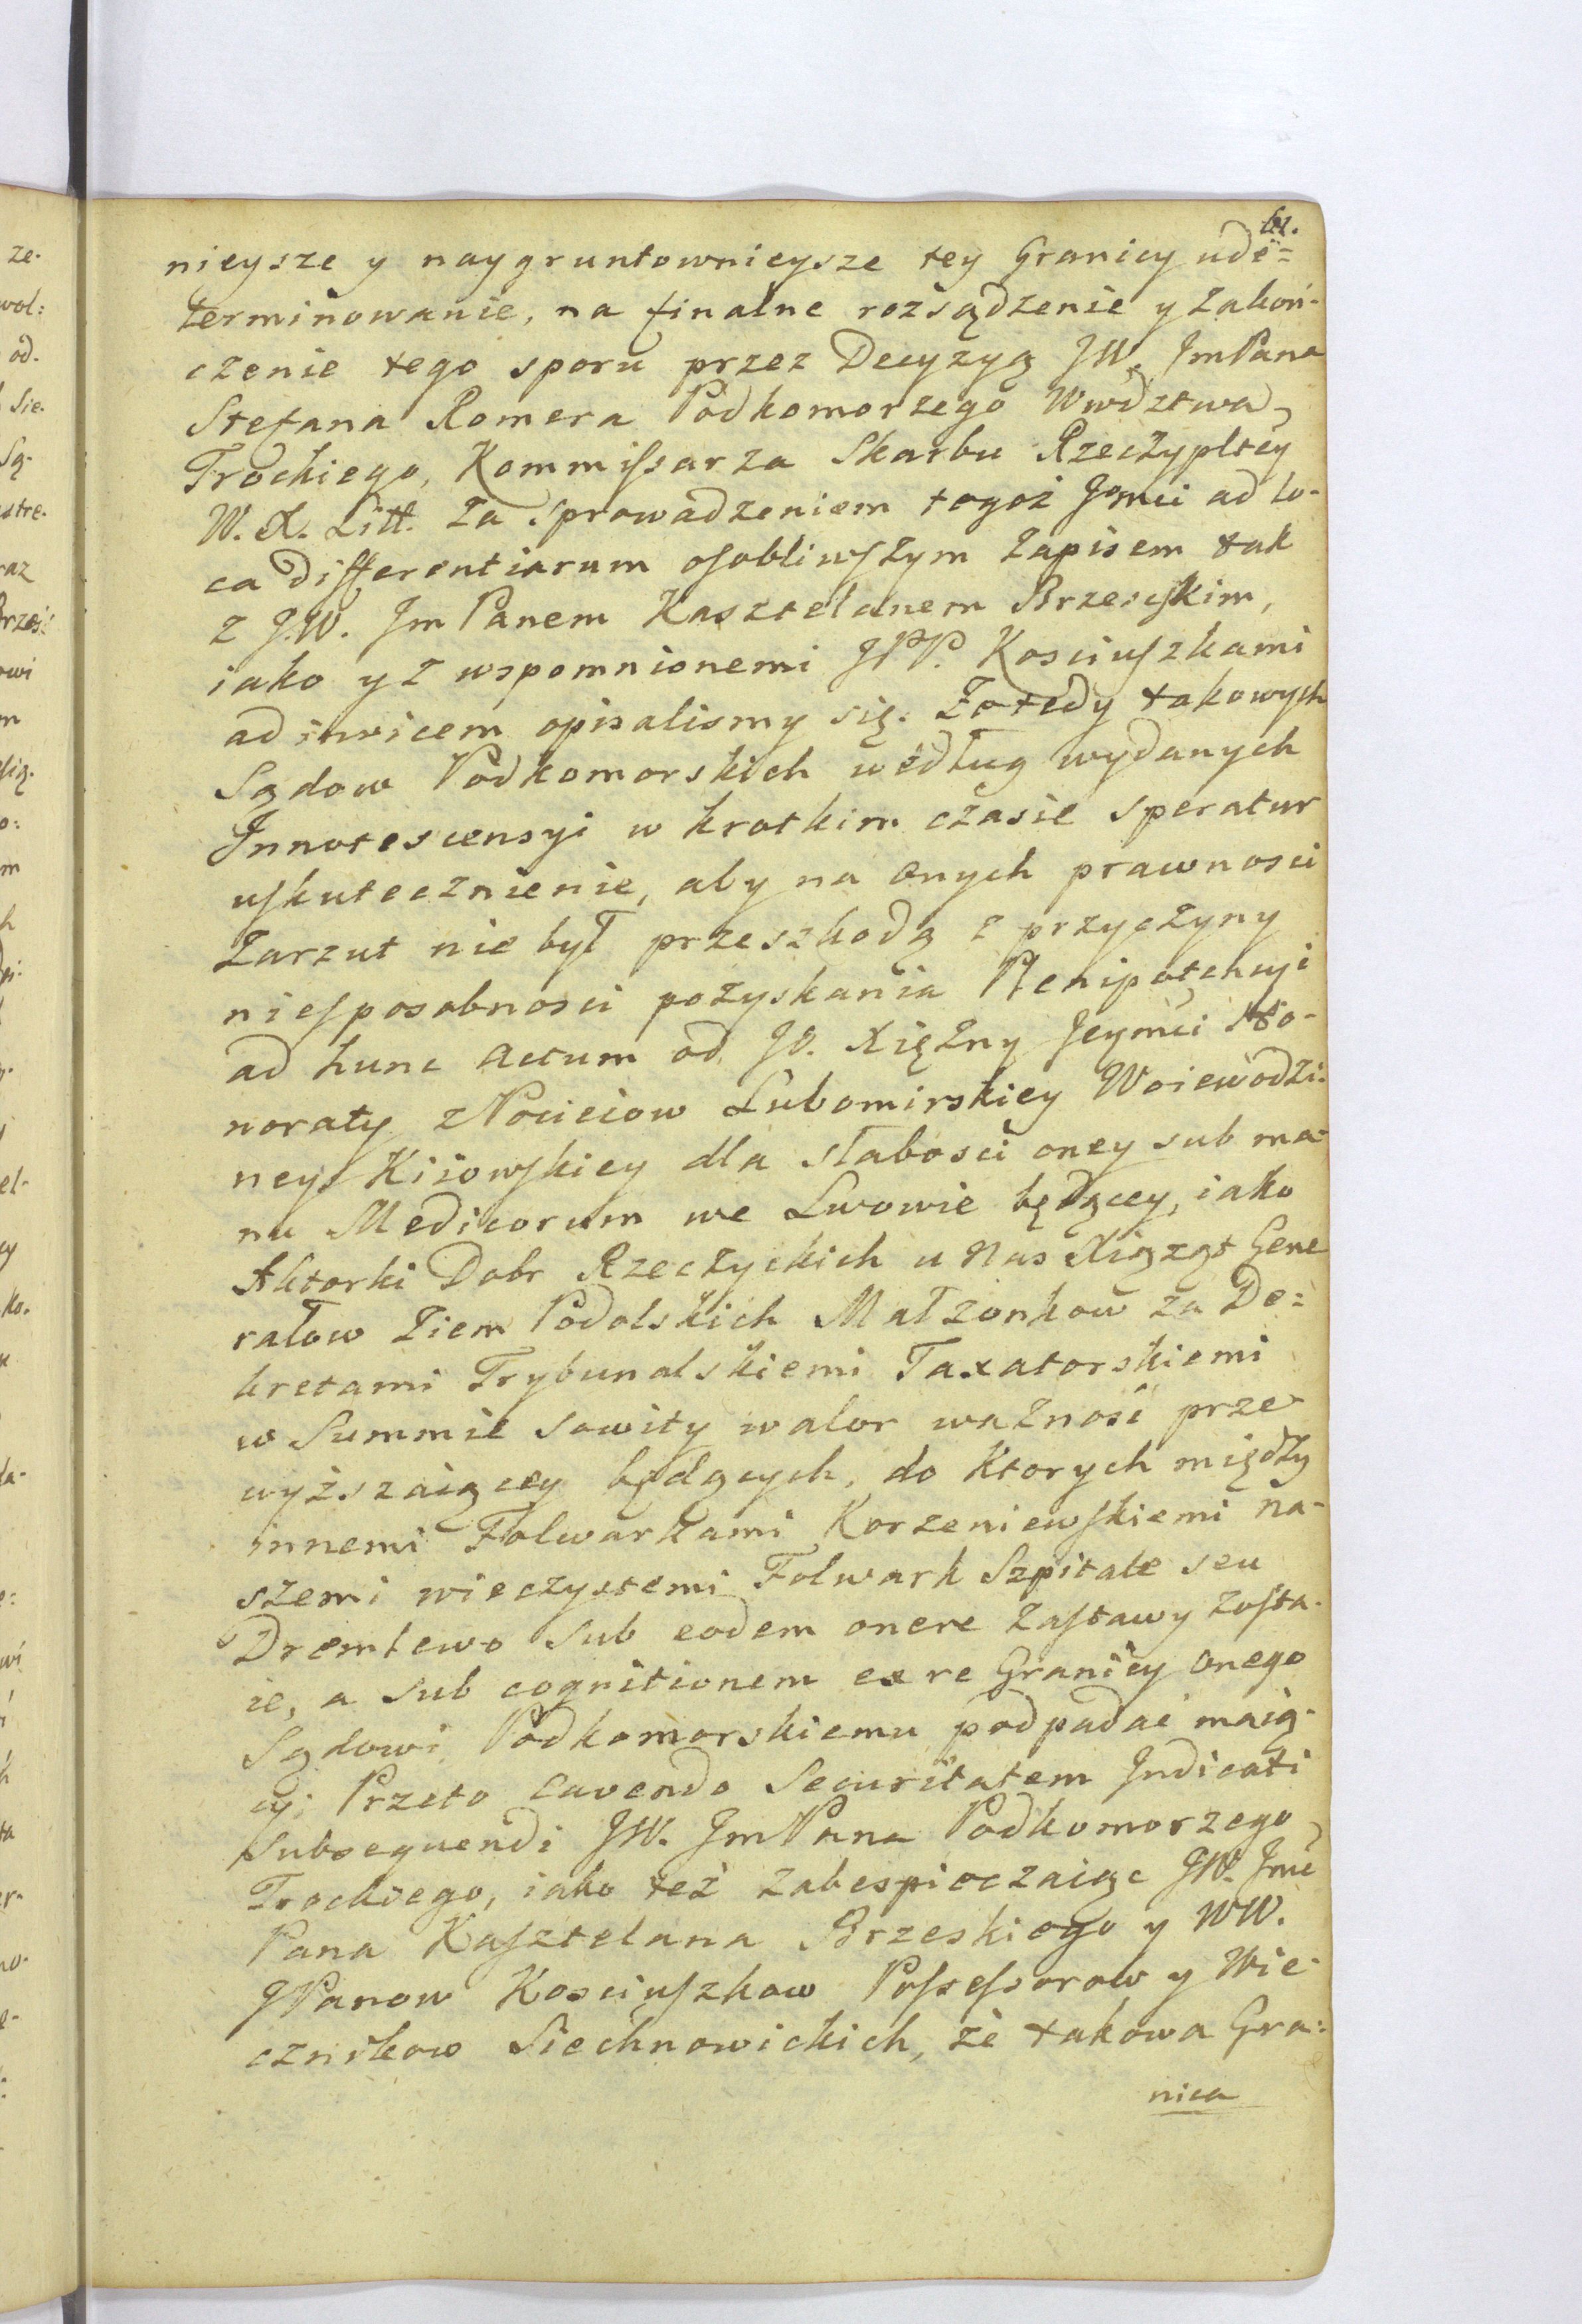 61.
nieysze y naygruntownieysze tey Granicy ude=
terminowanie, na finalne rozsądzenie y zakoń-
czenie tego sporu przez Decyzyą JW. JmPana
Stefana Romera Podkomorzego Wwdztwa
Trockiego, Kommissarza Skarbu Rzeczypltey
W. X. Litt. za sprowadzeniem togoż Jomci ad lo-
ca differentiarum osobliwszym zapisem tak
z J.W. Jm Panem Kasztelanem Brzeskim,
iako y z wspomnionemi JPP. Kosciuszkami
ad invicem opisalismy się. Zatedy takowych
Sądow Podkomorskich według wydanych
Innotescensyi w krotkim czasie speratur
uskutecznienie, aby na onych prawnosci
zarzut nie był przeszkodą z przyczyny
niesposobnosci pozyskania Plenipotencyi
ad hunc actum od JO. Xiężny Jeymci Ho-
noraty z Pocieiow Lubomirskiey Woiewodzi-
ney Kiiowskiey dla słabosci oney sub ma-
nu Medicorum we Lwowie będącey, iako
Aktorki Dobr Rzeczyckich u nas Xiąząt Gene
rałow Ziem Podolskich Małzonkow za De=
kretami Trybunalskiemi Taxatorskiemi
w Summie sowity walor waznosć prze-
wyższaiącey będących, do ktorych między
innemi Folwarkami Korzeniewskiemi na-
szemi wieczystemi Folwark Szpitale seu
Dremlewo sub eodem onere Zastawy zosta-
ie, a sub cognitionem ex re Granicy onego
Sądowi Podkomorskiemu podpadać maią-
cy; Przeto cavendo Securitatem Judicati
subsequendi JW. JmPana Podkomorzego
Trockiego, iako też zabespieczaiąc JW. Jmć
Pana Kasztelana Brzeskiego y WW.
JPanow Kosciuszkow Possessorow y Wie-
cznikow Siechnowickich, że takowa Gra-
nica